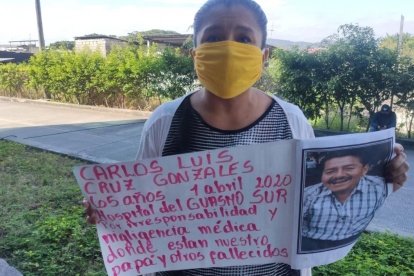 CARLOS LUIS
CRUZ GONZALES
65 años 1 abril 2020
Hospital del GUASMO SUR
irresponsabilidad y
negligencia médica
donde estan nuestro
papá y otros fallecidos